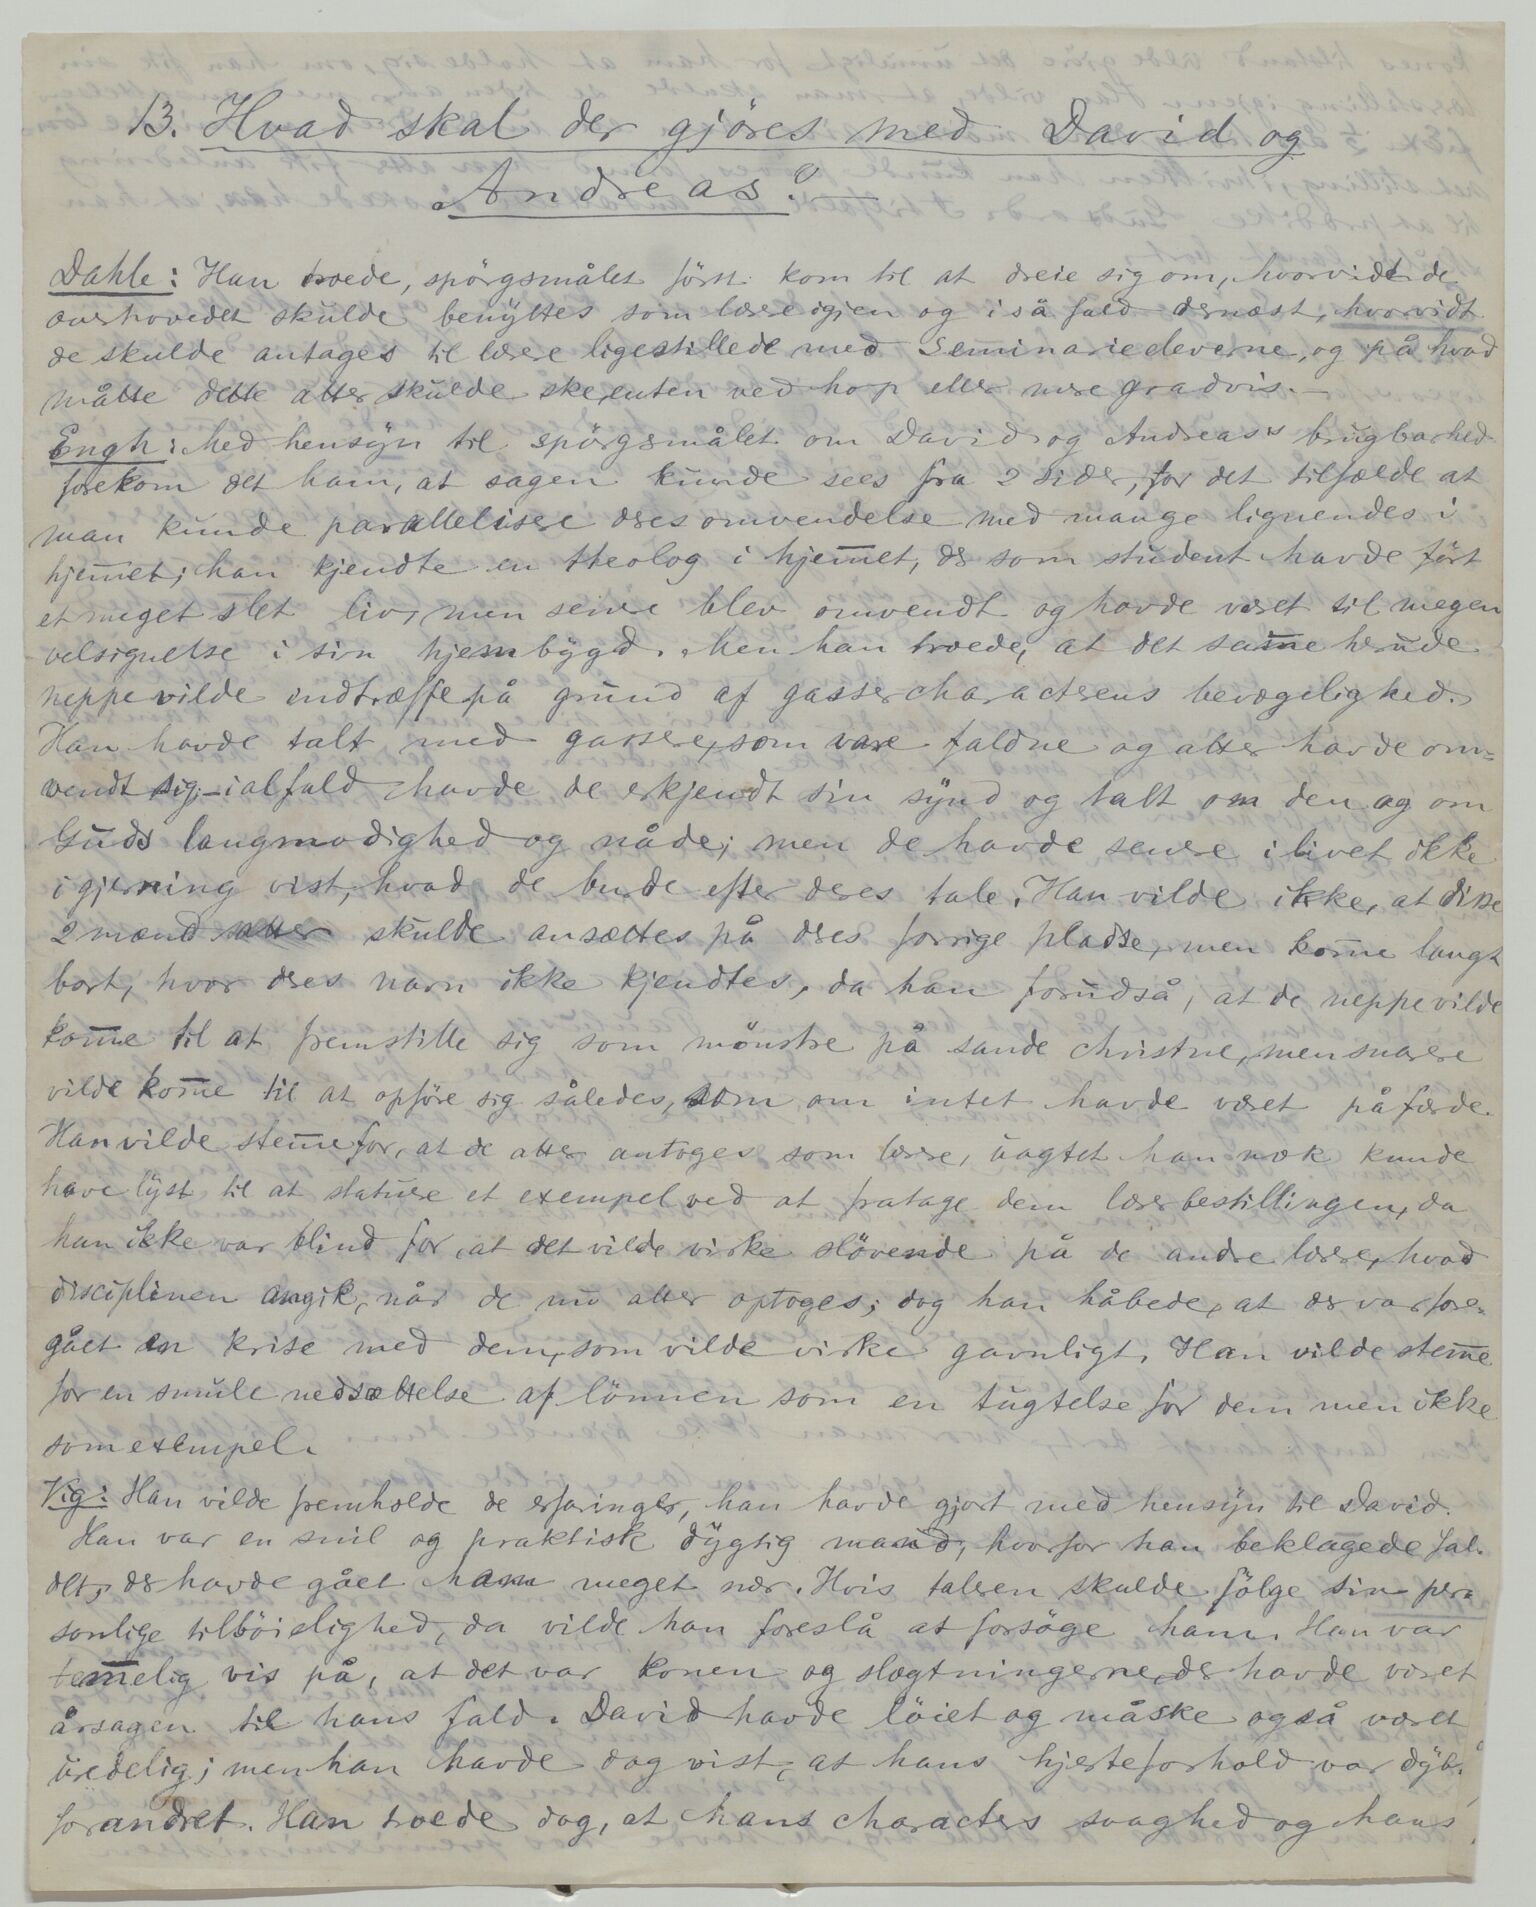 13. Hvad skal der gjöres med David og
Andreas?
Dahle: Han troede, spörgsmålet först kom til at dreie sig om, hvorvidt de
overhovedet skulde benyttes som lærere igjen og i så fald dernæst, hvorvidt
de skulde antages til lærere ligestillede med Seminarieeleverne, og på hvad
måtte dette atter skulde ske, enten ved hop eller mere gradvis. —
Engh: Med hensyn til spörgsmålet om David og Andreas's brugbarhed
forekom det ham, at sagen kunde sees fra 2 sider, for det tilfælde at
man kunde parallelisere deres omvendelse med mange lignendes i
hjem̅et; han kjendte en theolog i hjem̅et, der som student havde fört
et meget slet liv, men senere blev omvendt og havde været til megen
velsignelse i sin hjembygd. Men han troede, at det sam̅e herude
neppe vilde indtræffe på grund af gassercharacterens bevægelighed.
Han havde talt med gassere, som vare faldne og atter havde om=
vendt sig – ialfald havde de erkjendt sin synd og talt om den og om
Guds langmodighed og nåde; men de havde senere i livet ikke
i gjerning vist, hvad de burde efter deres tale. Han vilde ikke, at disse
2 mænd atter skulde ansættes på deres forrige pladse, men kom̅e langt
bort, hvor deres navn ikke kjendtes, da han forudså, at de neppe vilde
kom̅e til at fremstille sig som mönstre på sande christne, men snarere
vilde kom̅e til at opföre sig således, som om intet havde været på færde.
Han vilde stem̅e for, at de atter antoges som lærere, uagtet han nok kunde
have lyst til at statuere et exempel ved at fratage dem lærerbestillingen, da
han ikke var blind for, at det vilde virke slövende på de andre lærere, hvad
disciplinen angik, når de nu atter optoges; dog han håbede, at der var fore=
gået en krise med dem, som vilde virke gavnligt. Han vilde stem̅e
for en smule nedsættelse af lönnen som en tugtelse for dem men ikke
som exempel.
Vig: Han vilde fremholde de erfaringer, han havde gjort med hensyn til David.
Han var en snil og praktisk dygtig mand, hvorfor han beklagede fal=
det, der havde gået ham meget nær. Hvis taleren skulde fölge sin per=
sonlige tilböielighed, da vilde han foreslå at forsöge ham. Han var
tem̅elig vis på, at det var konen og slægtningerne, der havde været
årsagen til hans fald. David havde löiet og måske også været
uredelig; men han havde dog vist, at hans hjerteforhold var dybt
forandret. Han troede dog, at hans characters svaghed og hans